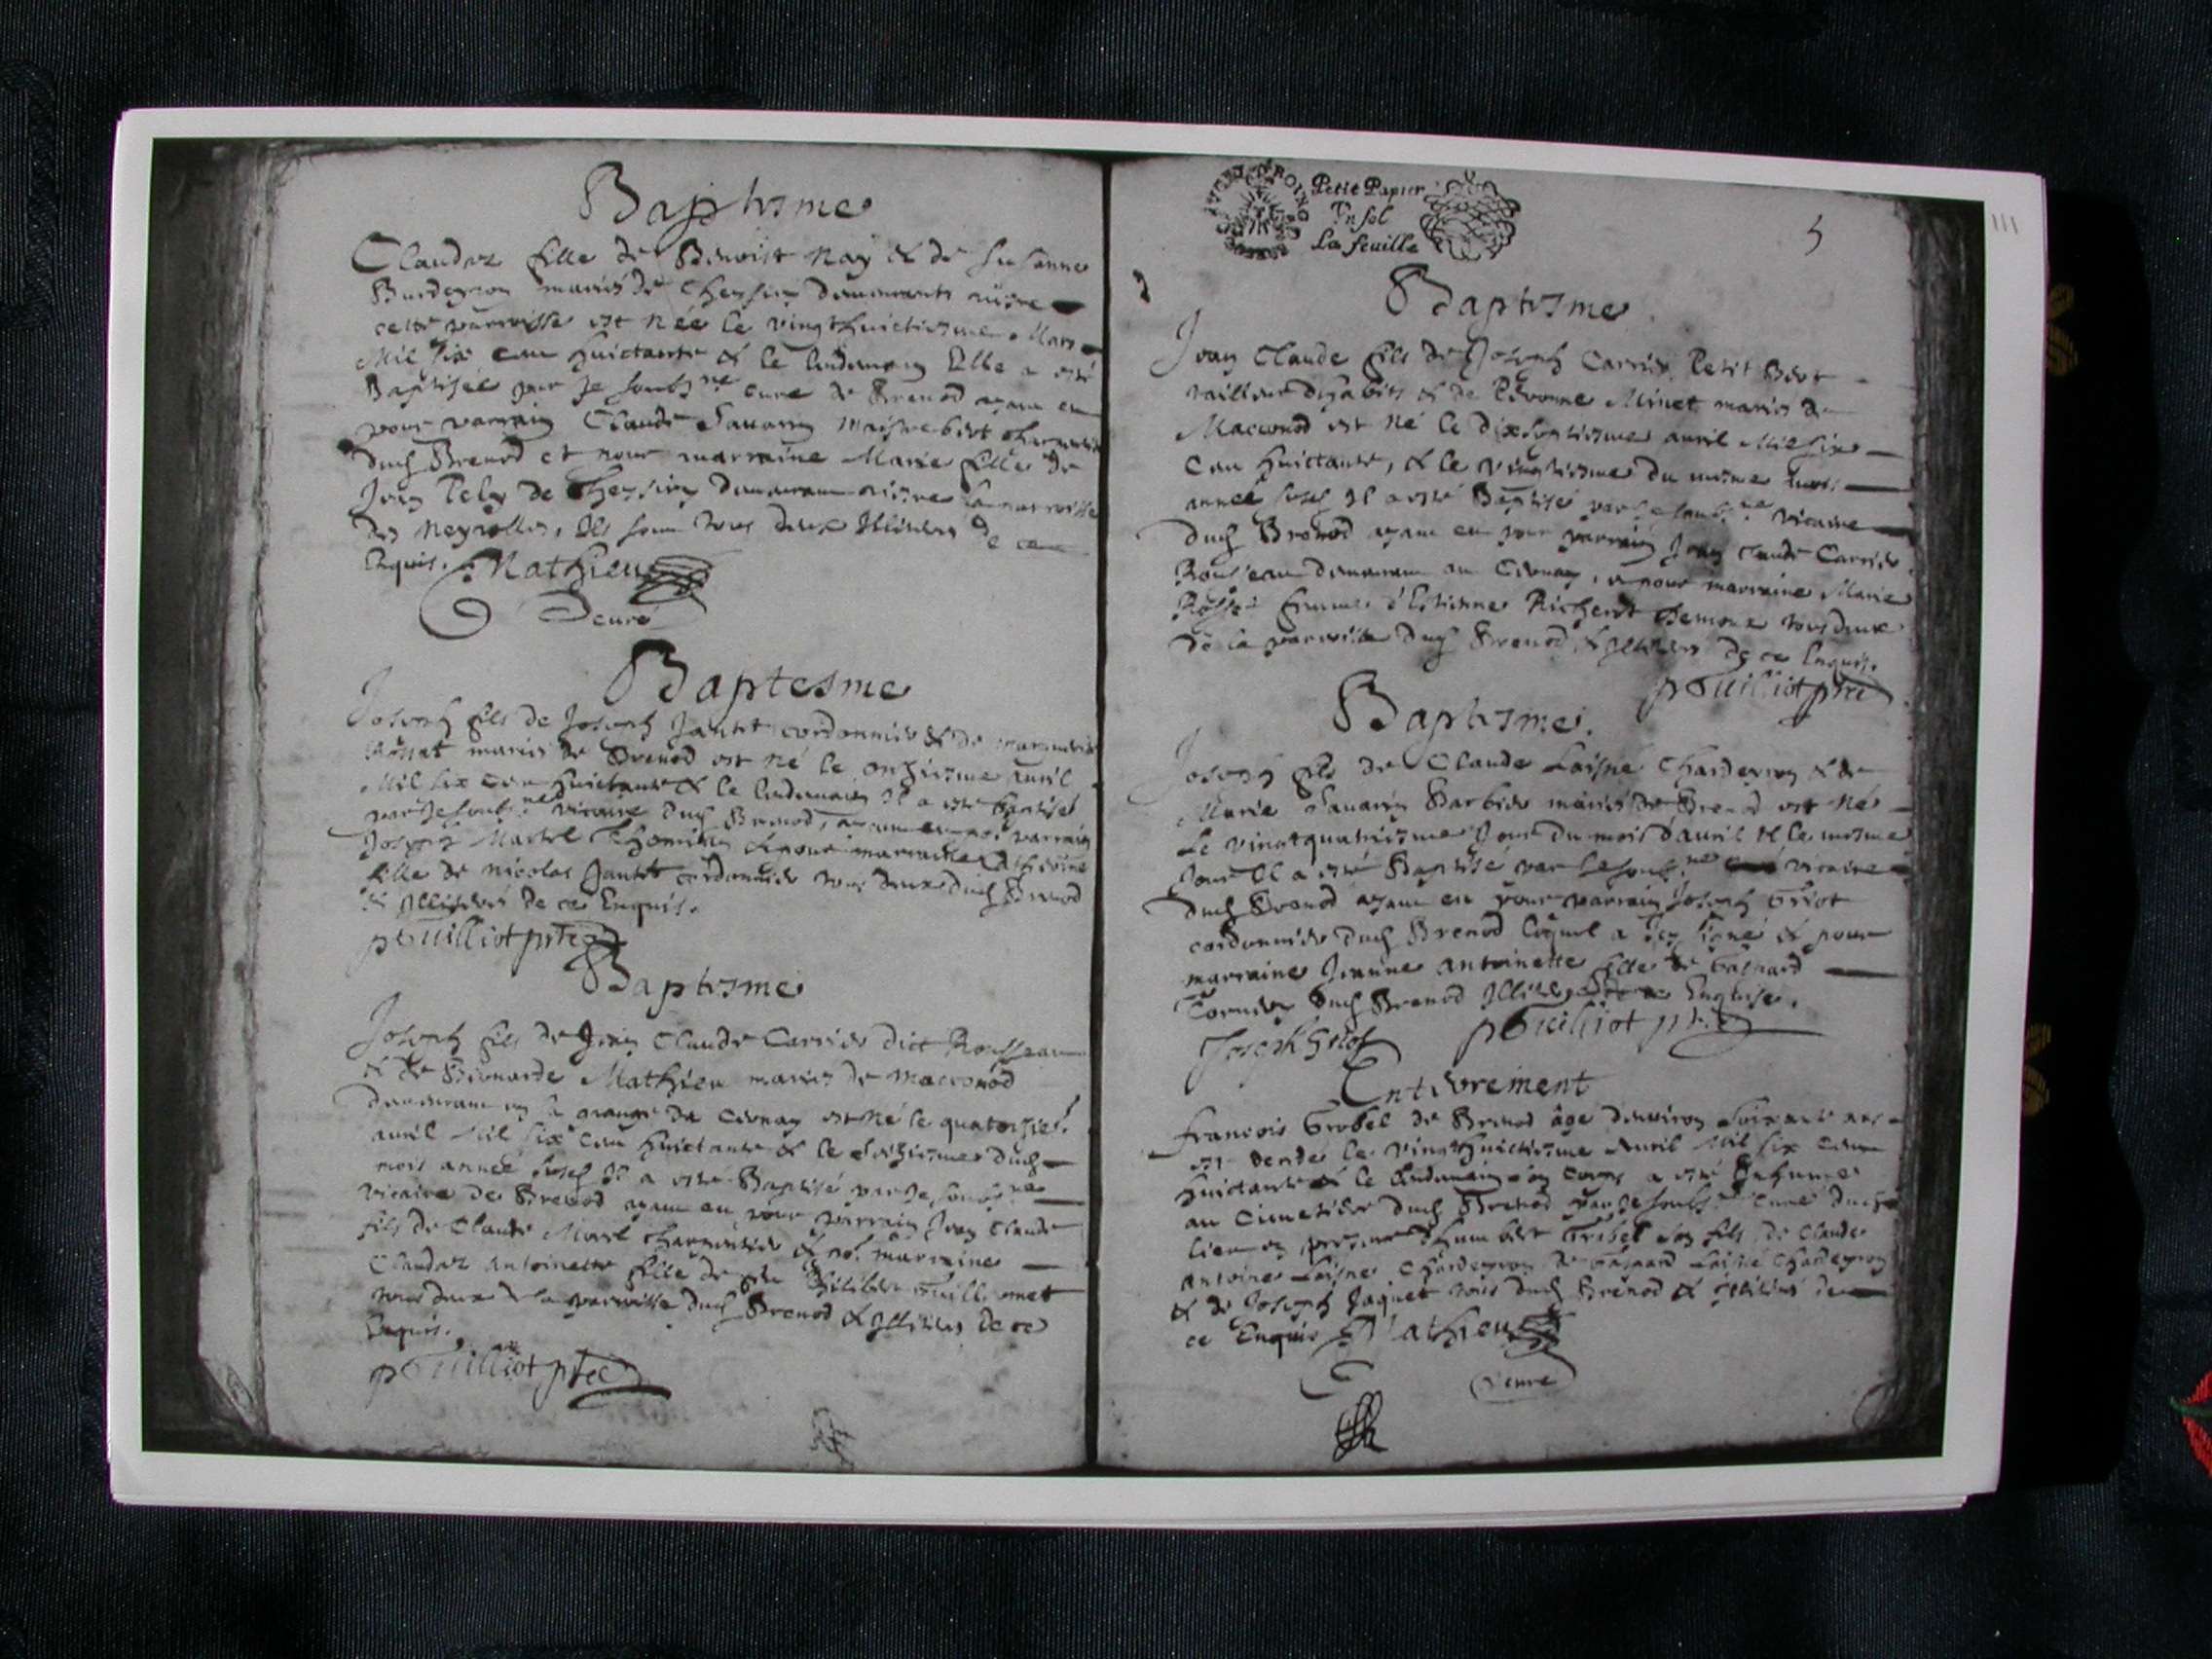 Baptesme
Claudaz fille de Benoist Nay & de Susanne
mariés de Cheysieu demeurants riere
cette parroisse est née le vingthuictiesme Mars
Mil six cen huictante & le lendemain Elle a esté
Baptisée par je soubsne curé de Brenod ayant eu
pour parrain Claude Savarin charpentier
dud Brenod et pour marraine Marie fille de
Jean de Cheysieu demeurant riere la parroisse
des Neyrolles, Ils sont tous deux Illiteres de ce
Enquis. Mathieu
curé
Baptesme
Joseph fils de Joseph Jantet cordonnier & de
Rossat mariés de Brenod est né le onziesme Avril
Mil six cen huictante & le lendemain Il a esté baptisé
par Je soubsne vicaire dud Brenod, ayant eu po parrain
Joseph Martel & pour marraine
fille de Nicolas Jantet cordonnier tous deux dud Brenod
& Illiteres de ce Enquis.
pGuilliot ptre
Baptesme
Joseph fils de Jean Claude Carrier dict Rousseau
& de Bernarde Mathieu mariés de Macconod
demeurant en la grange de Cevnay est né le quatorzie
avril Mil six cen huictante & le seiziesme dud
mois année susd Il a esté Baptisé par Je soubsne
vicaire de Brenod ayant eu pour parrain Jean Claude
fils de Claude Morel charpentier & po marraine
Claudaz Antoinette fille de feu Philibert Guillermet
tous deux de la parroisse dud Brenod & Illiteres de ce
Enquis.
pGuilliot ptre
Petit Papier
Un sol
La feuille
5
Baptesme
Jean Claude fils de Joseph Carrier Petit Bert
tailleur dhabits & de Pevonne Minet mariés de
Macconod est né le dixseptiesme avril Mil six
Cen huictante, & le vingtiesme du mesme mois
année susd Il a esté Baptisé par Je soubsne vicaire
dud Brenod ayant eu pour parrain Jean Claude Carrier
Rousseau demeurant au Cevnay, & pour marraine Marie
femme d'Estienne Richerot tous deux
de la parroisse dud Brenod & Illiteres de ce Enquis.
pGuilliot ptre
Baptesme.
Joseph fils de Claude Laisné Chardeyron & de
Marie Savarin Barbier mariés de Brenod est né
Le vingtquatriesme Jour du mois d'avril & le mesme
Jour Il a esté Baptisé par Je soubsne vicaire
dud Brenod ayant eu pour parrain Joseph Griot
cordonnier dud Brenod lequel a icy signé & pour
marraine Jeanne Antoinette fille de Gaspard
Tornier dud Brenod Illitere de ce Enquise.
Joseph Griot pGuilliot ptre
Enterrement
Francois Grobel de Brenod âgé d'environ soixante ans
est decedé le vingthuictiesme Avril Mil six cen
huictante & le lendemain son corps a esté Inhumé
au Cimetiere dud Brenod par Je soubsne Curé dud
lieu en presence d'humbert Grobel son fils, de Claude
Antoine Laisné Chardeyron de Gaspard Laisné Chardeyron
& de Joseph Jaquet tous dud Brenod & Illiteres de
ce Enquis Mathieu
curé